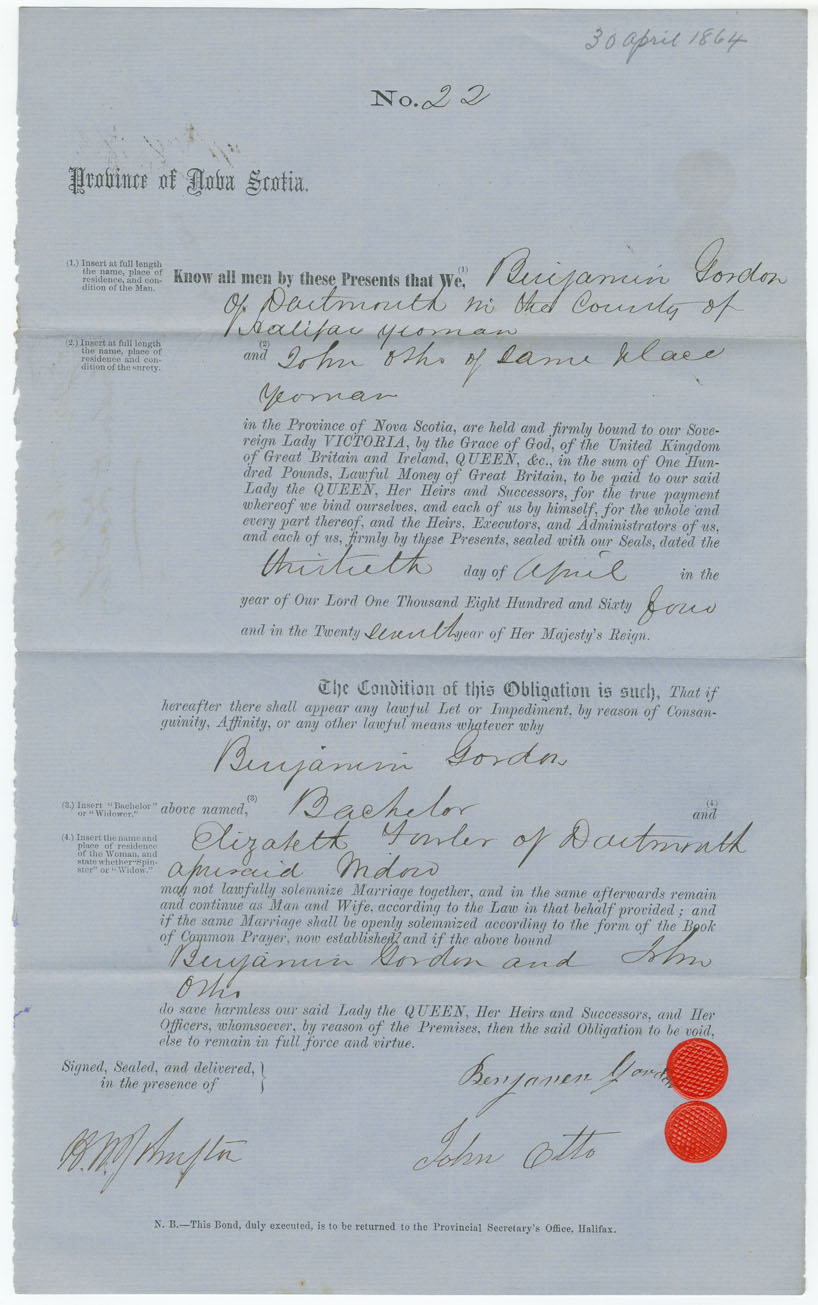 30 april 1864
No. 22
Province of Nova Scotia.
(1.) Insert at full length
the name, place of
residence, and con-
dition of the Man.
Know all men by these Presents that We, (1) Benjamin Gordon
of Dartmouth in the County of
Halifax yeoman
(2.) Insert at full length
the name, place of
residence and con-
dition of the surety.
and (2) John Otho of Same place
yeoman
in the Province of Nova Scotia, are held and firmly bound to our Sove-
reign Lady VICTORIA, by the Grace of God, of the United Kingdom
of Great Britain and Ireland, QUEEN, &c., in the sum of One Hun-
dred Pounds, Lawful Money of Great Britain, to be paid to our said
Lady the QUEEN, Her Heirs and Successors, for the true payment
whereof we bind ourselves, and each of us by himself, for the whole and
every part thereof, and the Heirs, Executors, and Administrators of us,
and each of us, firmly by these Presents, sealed with our Seals, dated the
thirtieth day of April in the
year of Our Lord One Thousand Eight Hundred and Sixty four
and in the Twenty seventh year of Her Majesty's Reign.
The Condition of this Obligation is such, That if
hereafter there shall appear any lawful Let or Impediment, by reason of Consan-
guinity, Affinity, or any other lawful means whatever why
Benjamin Gordon
(3.) Insert "Bachelor"
or "Widower."
above named, (3) Bachelor and (4)
(4.) Insert the name and
place of residence
of the Woman, and
state whether "Spin-
ster" or "Widow."
Elizabeth Fowler of Dartmouth
aforesaid Widow
may not lawfully solemnize Marriage together, and in the same afterwards remain
and continue as Man and Wife, according to the Law in that behalf provided; and
if the same Marriage shall be openly solemnized according to the form of the Book
of Common Prayer, now established, and if the above bound
Benjamin Gordon and John
Otho
do save harmless our said Lady the QUEEN, Her Heirs and Successors, and Her
Officers, whomsoever, by reason of the Premises, then the said Obligation to be void,
else to remain in full force and virtue.
Signed, Sealed, and delivered,
in the presence of
Benjamen Gordon
John Otto
N. B.—This Bond, duly executed, is to be returned to the Provincial Secretary's Office, Halifax.